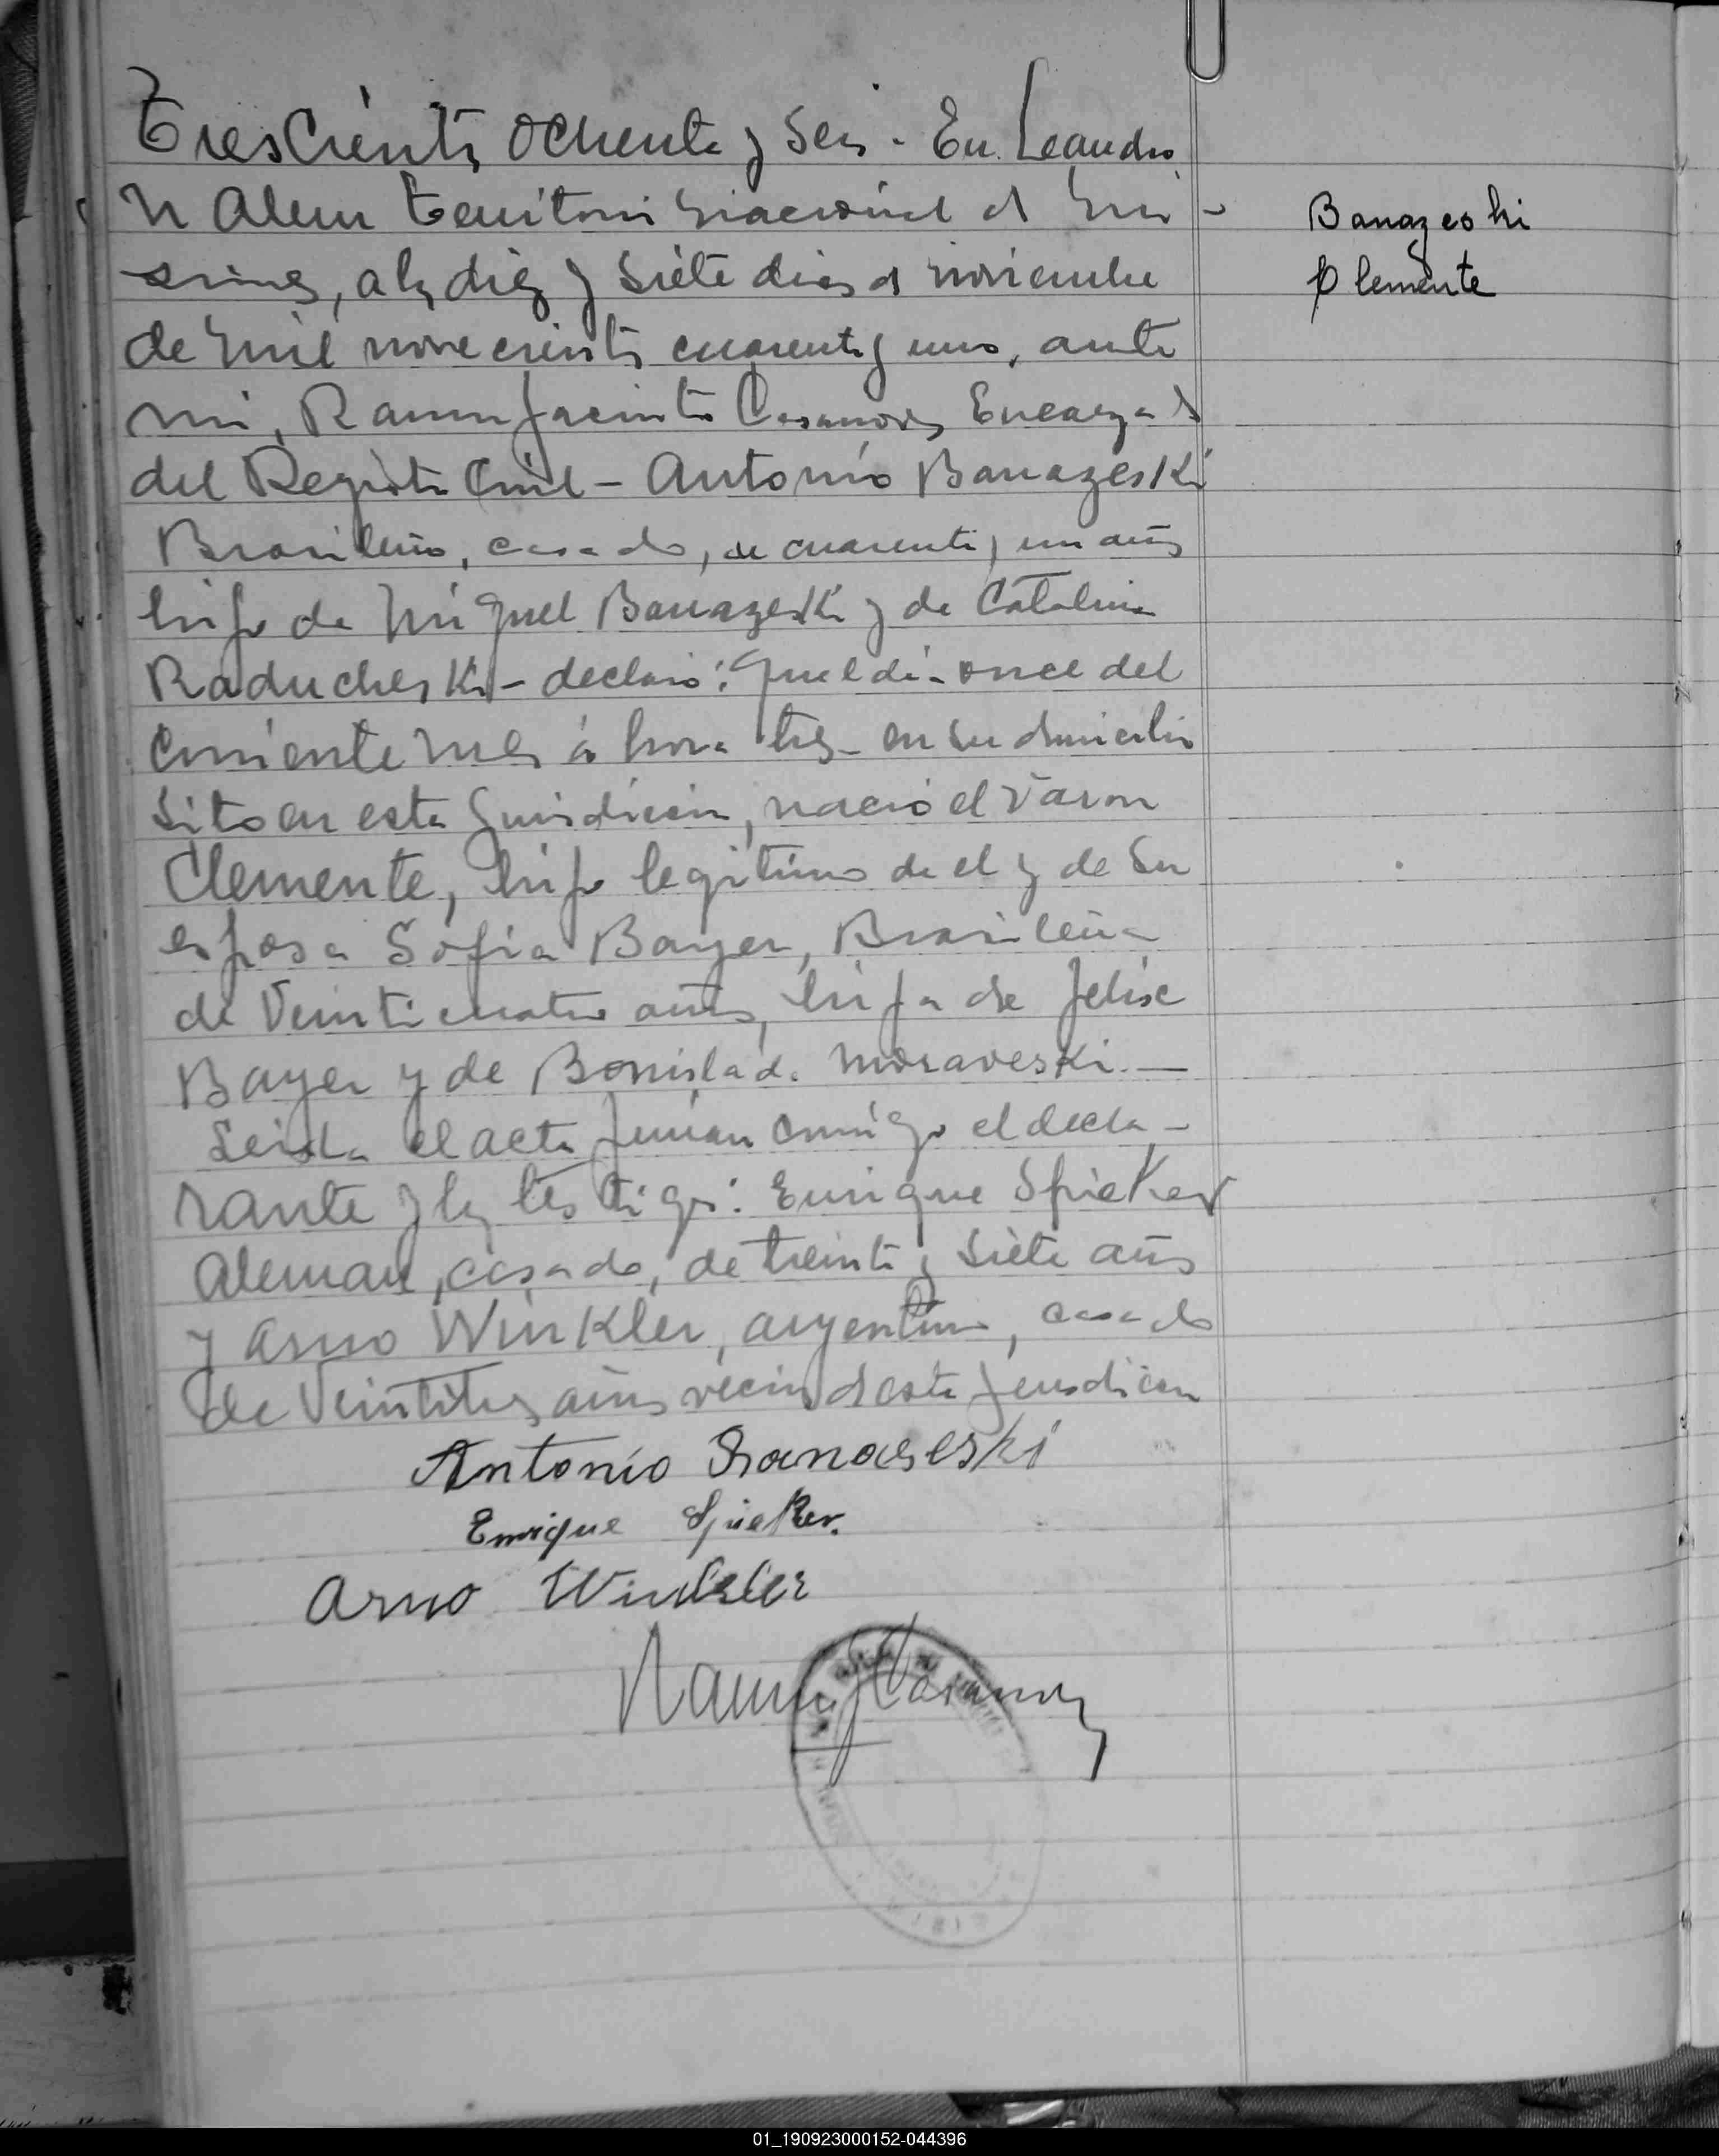 Trescientos Ochenta y Seis - En Leandro
N Alem Territorio Nacional de Mi -
siones, a los diez y siete dias de noviembre
de mil novecientos cuarenta y uno, ante
mi, Ramon Jacinto Casanova, Encargado
del Registro Civil - Antonio Banazeski
Brasileño, casado, de cuarenta y un años
hijo de Miguel Banazeski y de Catalina
Raducheski - declaró: Que el dia once del
corriente mes á hora tres - en su domicilio
sito en esta Jurisdicion, nació el Varon
Clemente, hijo legitimo de el y de su
esposa Sofia Bayer, Brasileña
de Veinticuatro años, hija de Felise
Bayer y de Bonislada Moraveski. —
Leida el acta firman conmigo el decla -
rante y los testigos: Enrique Spieker
Aleman, casado, de treinta y siete años
y Arno Winkler, argentino, casado
de Veintitres años vecinos de esta Jurisdicion
Antonio Banaseski
Enrique Spieker.
Arno Winkler
Ramon J Casanova
Banazeski
Clemente
01_190923000152-044396